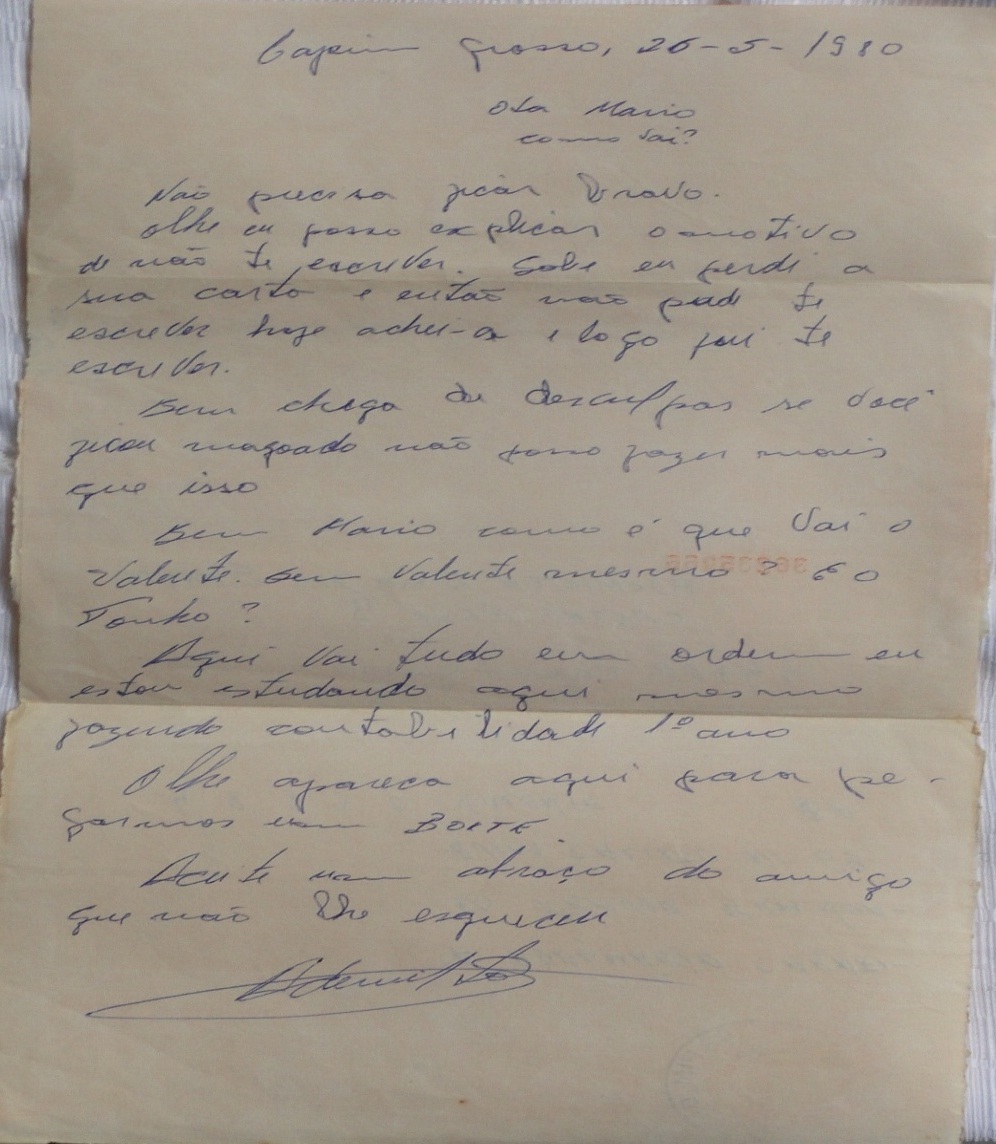 Capim Grosso, 26-5-1980
Ola Mario
como vai?
Não precisa ficar Bravo.
Olhe eu posso explicar o motivo
de não te escrever. Sabe eu perdi a
sua carta e então não pude te
escrever hoje achei-a e logo fui te
escrever.
Bem chega de desculpas se você
ficou magoado não posso fazer mais
que isso
Bem Mario como é que vai o
Valente. Bem Valente mesmo? E o
Tonho?
Aqui vai tudo em ordem eu
estou estudando aqui mesmo
fazendo contabilidade 1º ano
Olhe apareca aqui para pe-
garmos um BOITE.
Aceite um abraço do amigo
que não lhe esqueceu